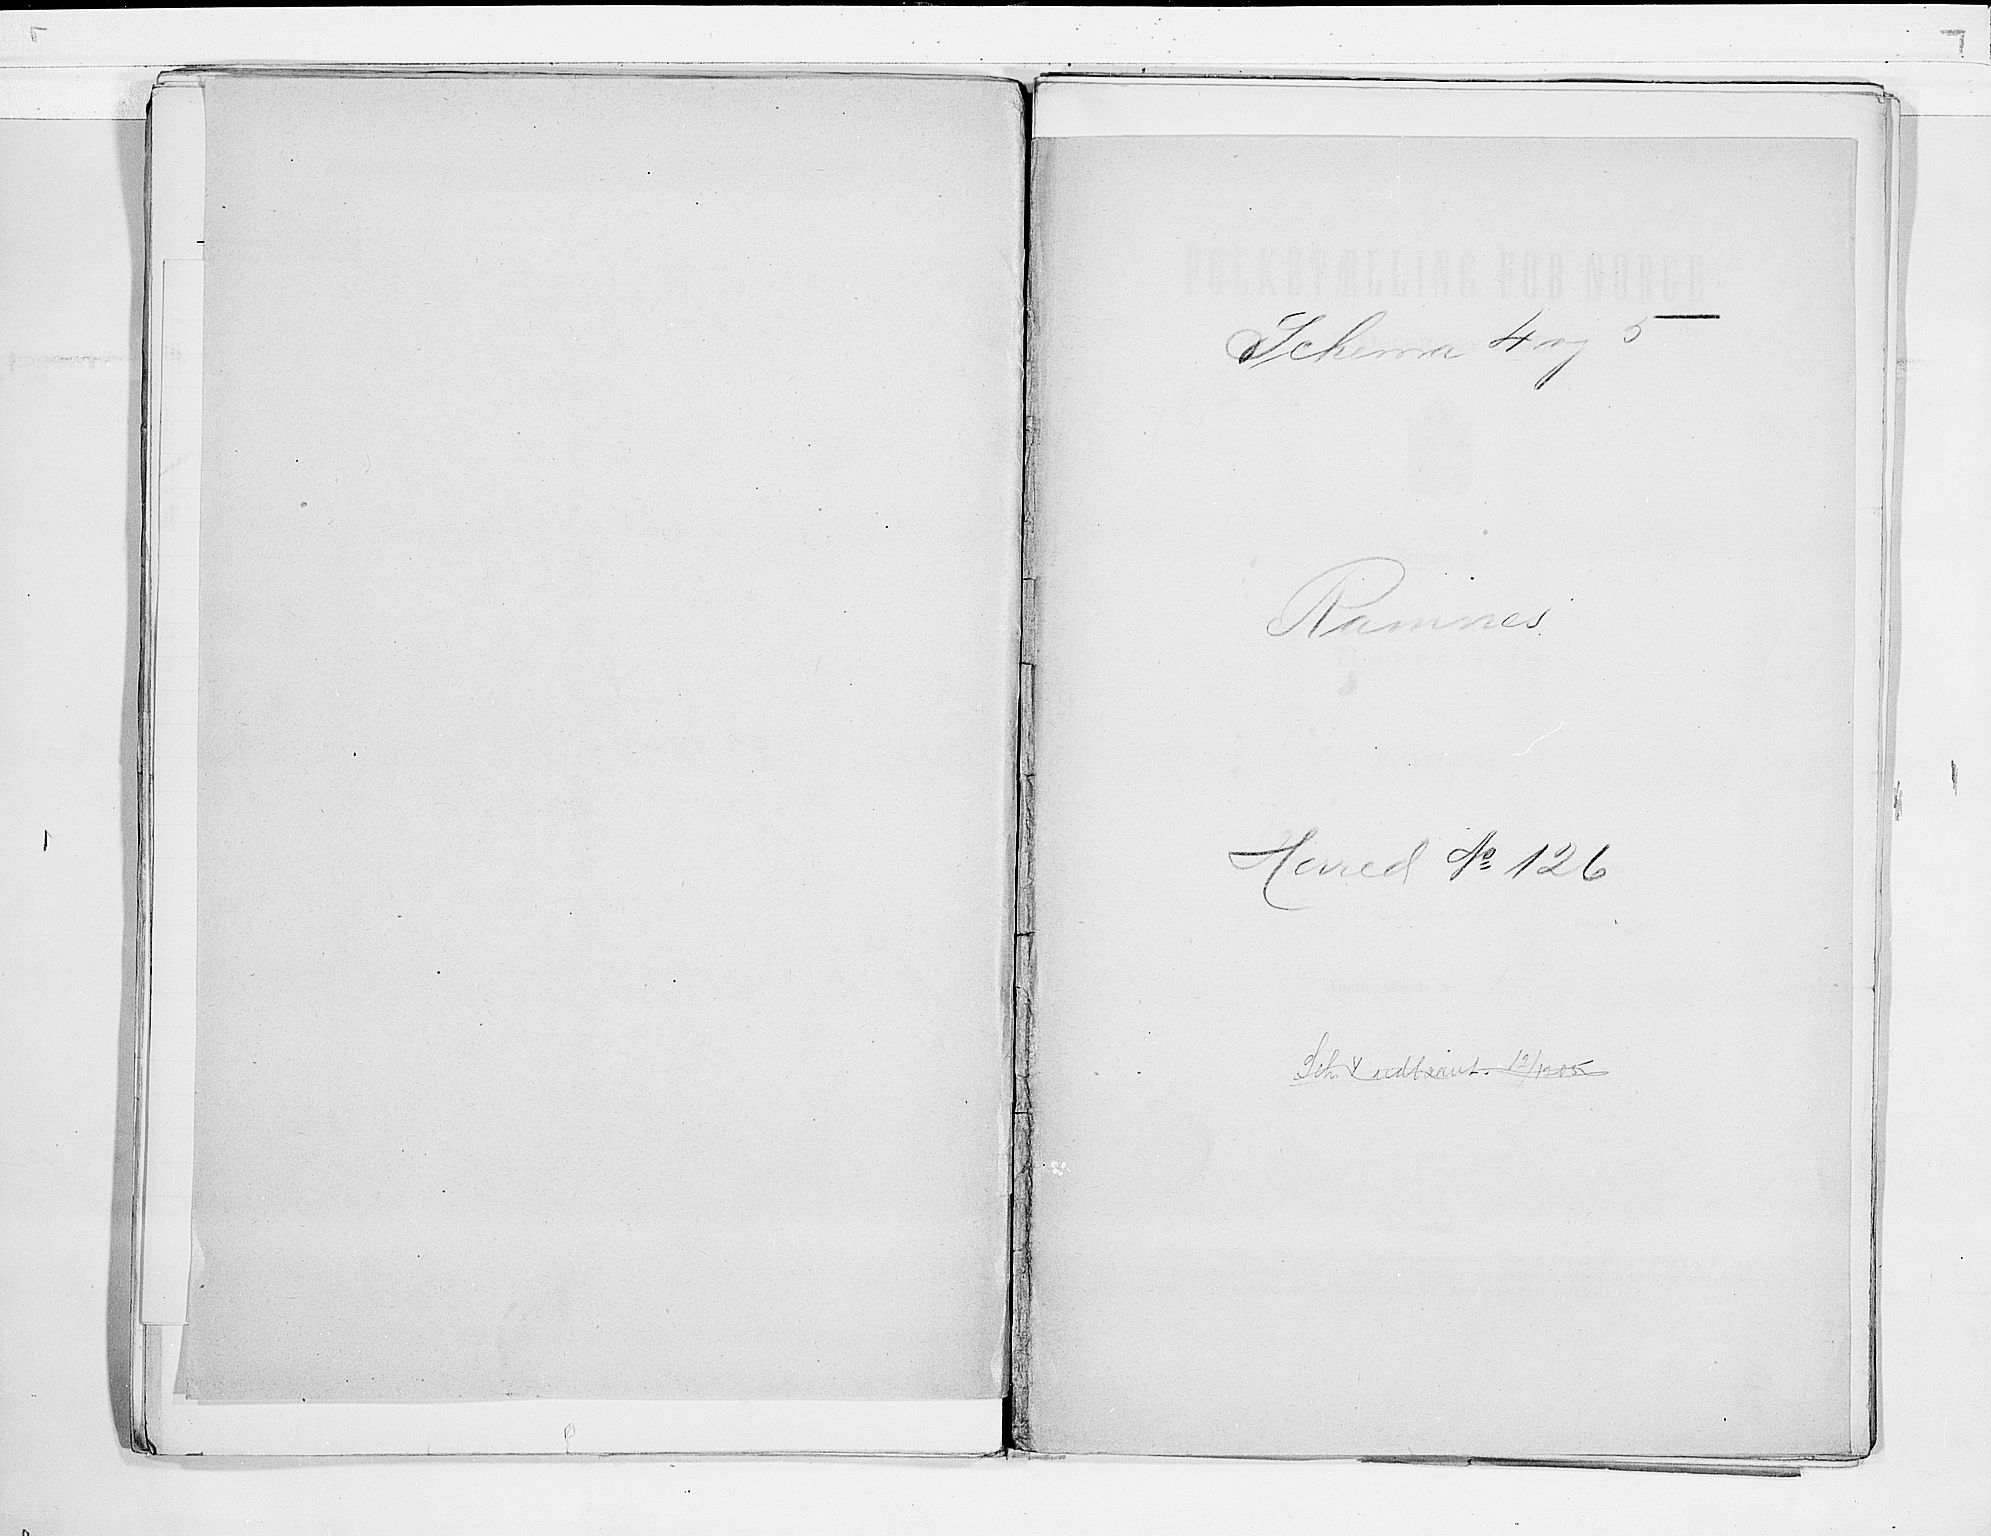 FOLKETÆLLING FOR NORGE
Schema 4 og 5
Ramnes
Herred № 126
Sch.